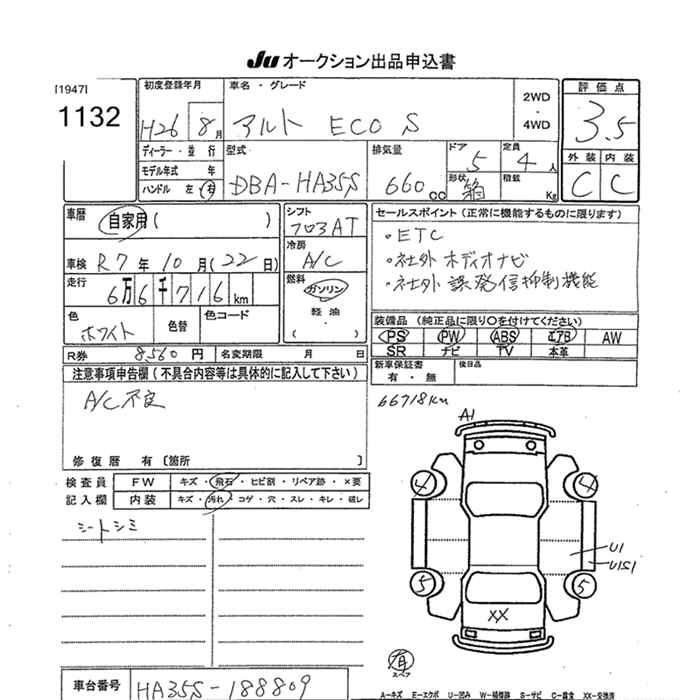 JU オークション出品申込書
[1947]
1132
初度登録年月
H26 8月
車名・グレード
アルト ECO S
2WD
・
4WD
評価点
3.5
外装 内装
C C
ディーラー・並行
モデル年式 年
ハンドル 左 右
型式
DBA-HA35S
排気量
660 cc
ドア 5
形状 箱
定員 4 人
積載 Kg
車歴 自家用 ( )
車検 R7年 10月(22日)
走行 6万6千716km
色 ホワイト 色替 色コード
シフト
フロアAT
冷房
A/C
燃料
ガソリン
軽油
・
( )
セールスポイント(正常に機能するものに限ります)
・ETC
・社外 オーディオナビ
・社外 誤発信抑制機能
装備品(純正品に限り○を付けてください)
PS PW ABS エアB AW
SR ナビ TV 本革
R券 8,560円 名変期限 月 日
新車保証書
有・無
後日品
注意事項申告欄(不具合内容等は具体的に記入して下さい)
A/C不良
修復歴 有〔箇所 〕
66718km
検査員
記入欄
FW キズ・飛石・ヒビ割・リペア跡・×要
内装 キズ・汚れ・コゲ・穴・スレ・キレ・破レ
シートシミ
A1
4 4
U1
U1S1
5 5
XX
有
スペア
車台番号 HA35S-188809
A-キズ E-エクボ U-凹み W-補修跡 S-サビ C-腐食 XX-交換済